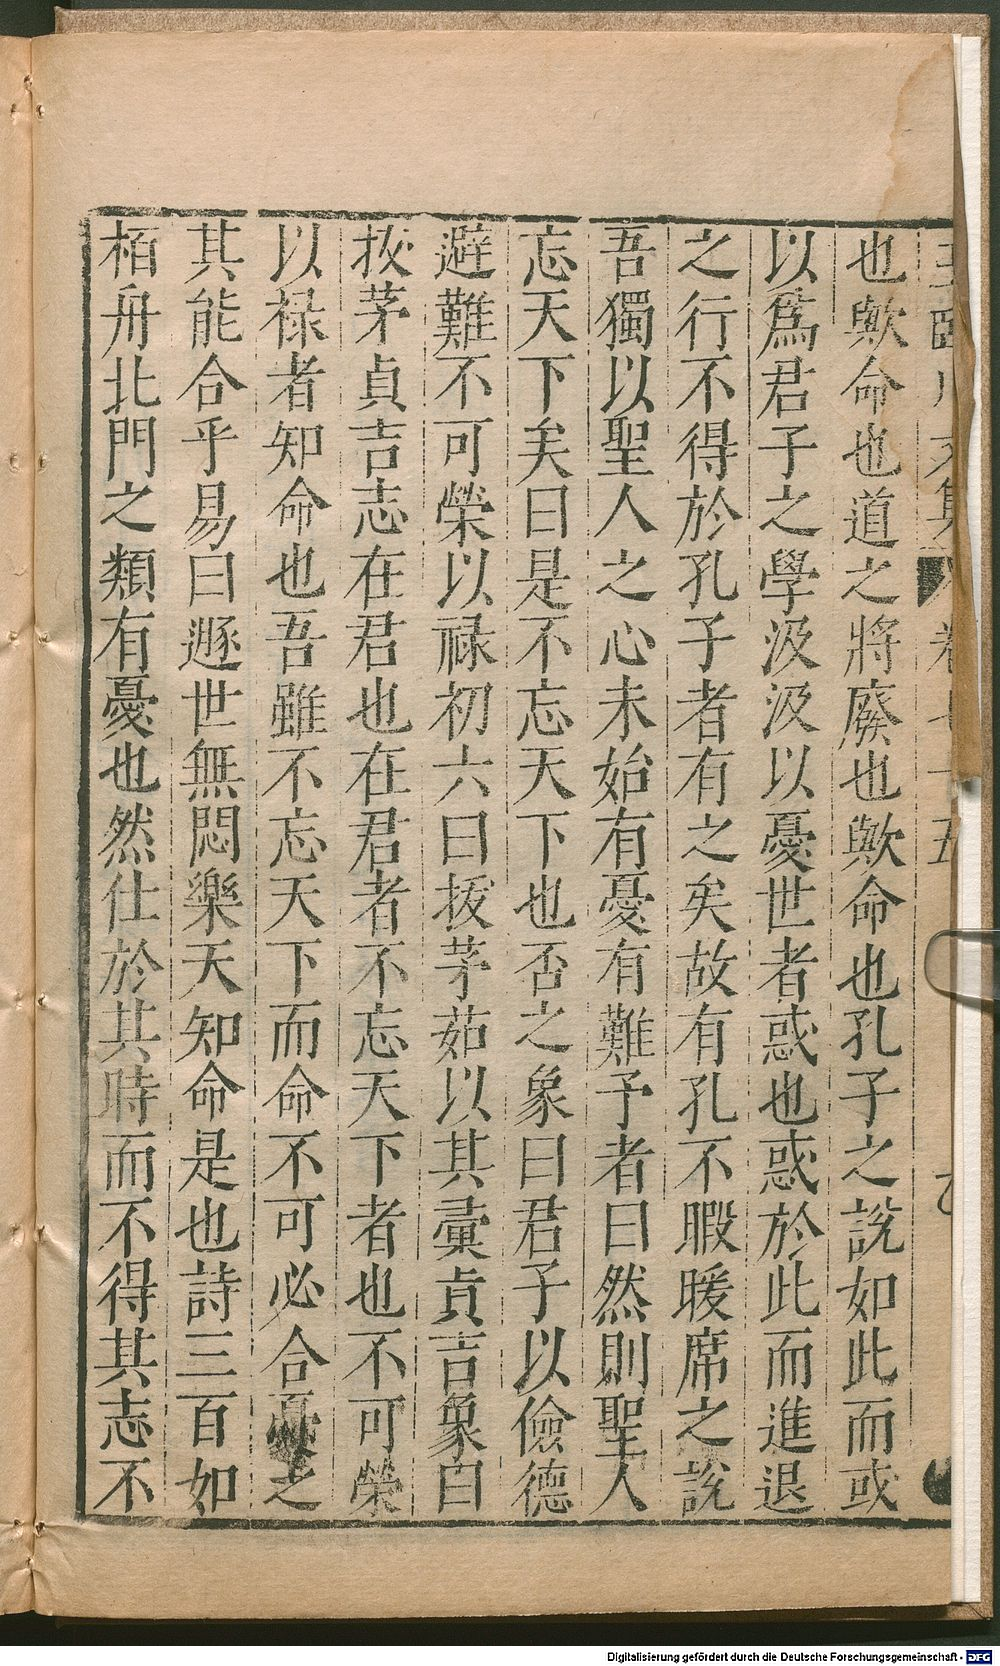 也歟命也道之將廢也歟命也孔子之說如此而或
以爲君子之學汲汲以憂世者惑也惑於此而進退
之行不得於孔子者有之矣故有孔不暇暖席之說
吾獨以聖人之心未始有憂有難予者曰然則聖人
忘天下矣曰是不忘天下也否之象曰君子以儉德
避難不可榮以祿初六曰拔茅茹以其彙貞吉象曰
拔茅貞吉志在君也在君者不忘天下者也不可榮
以祿者知命也吾雖不忘天下而命不可必合憂之
其能合乎易曰遯世無悶樂天知命是也詩三百如
栢舟北門之類有憂也然仕於其時而不得其志不
Digitalisierung gefördert durch die Deutsche Forschungsgemeinschaft - DFG